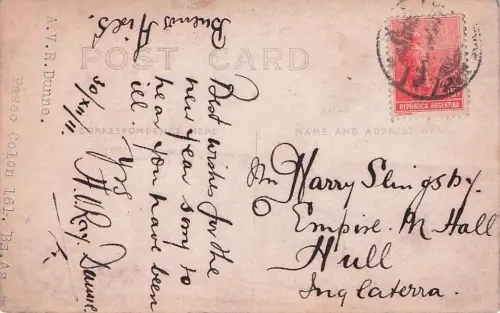 POST CARD
CORRESPONDENCE HERE
NAME AND ADDRESS HERE
REPUBLICA ARGENTINA
Buenos Aires.
Best wishes for the
new year sorry to
hear you have been
ill. Yrs
A. V. Roy. Dunne.
30/XI/11
A.V.R.Dunne.
Paseo Colon 161. Bs.As
Harry Slingsby.
Empire M Hall
Hull
Inglaterra.